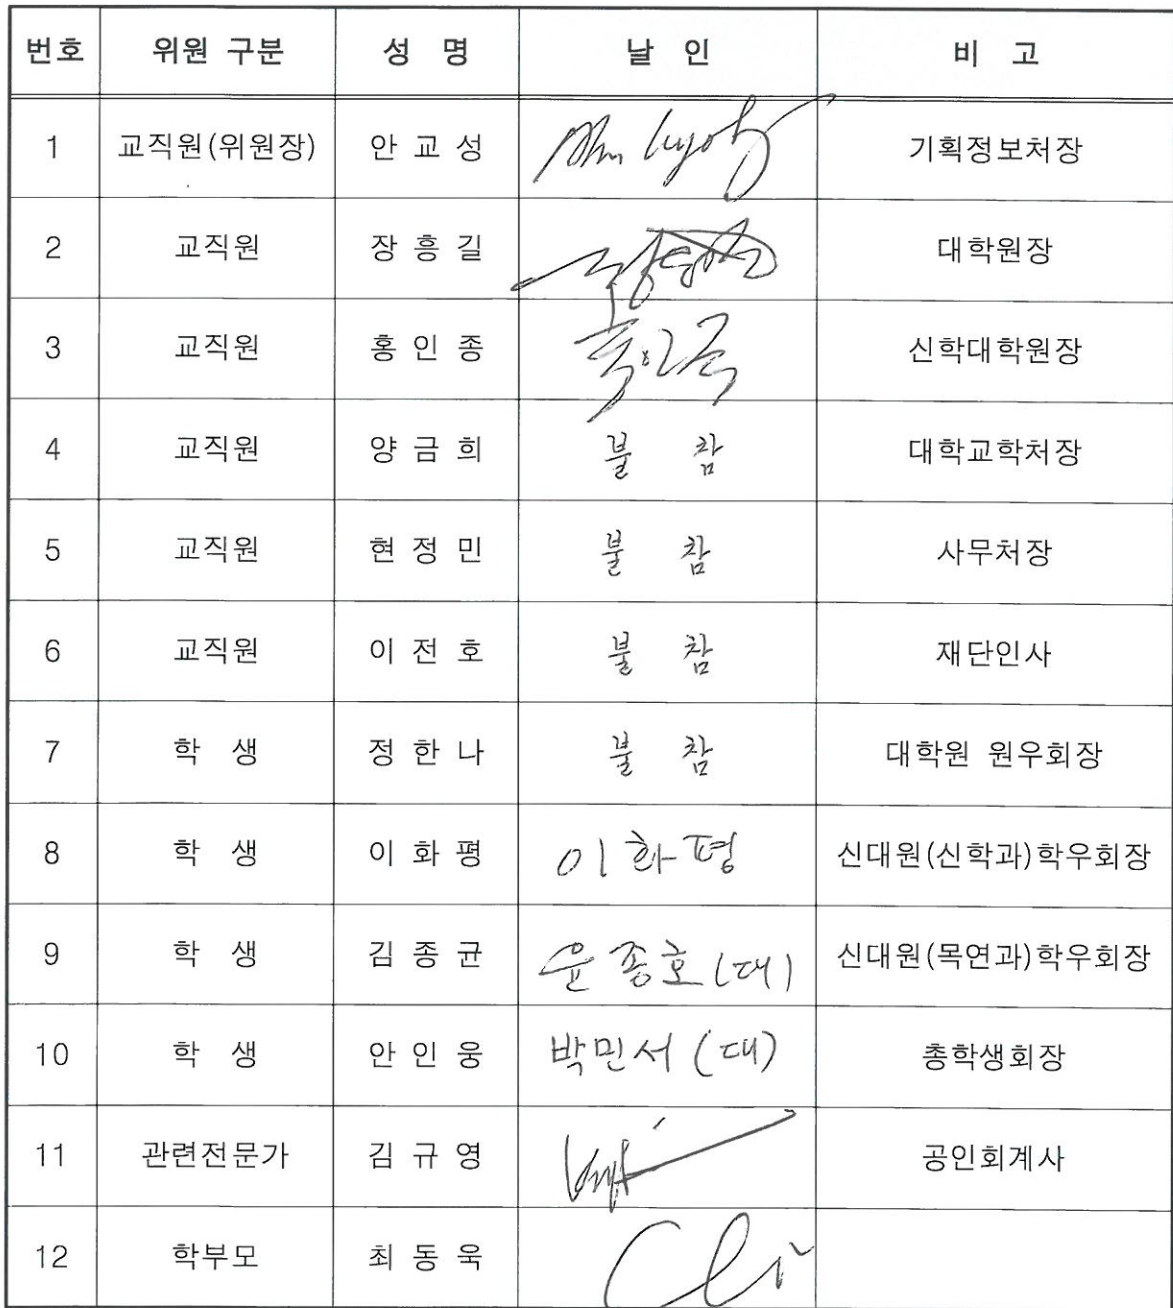 번호 위원 구분 성 명 날 인 비 고
1 교직원(위원장) 안 교 성 기획정보처장
2 교직원 장 흥 길 대학원장
3 교직원 홍 인 종 홍인종 신학대학원장
4 교직원 양 금 희 불 참 대학교학처장
5 교직원 현 정 민 불 참 사무처장
6 교직원 이 전 호 불 참 재단인사
7 학 생 정 한 나 불 참 대학원 원우회장
8 학 생 이 화 평 이화평 신대원(신학과)학우회장
9 학 생 김 종 균 윤종호(대) 신대원(목연과)학우회장
10 학 생 안 인 웅 박민서(대) 총학생회장
11 관련전문가 김 규 영 공인회계사
12 학부모 최 동 욱